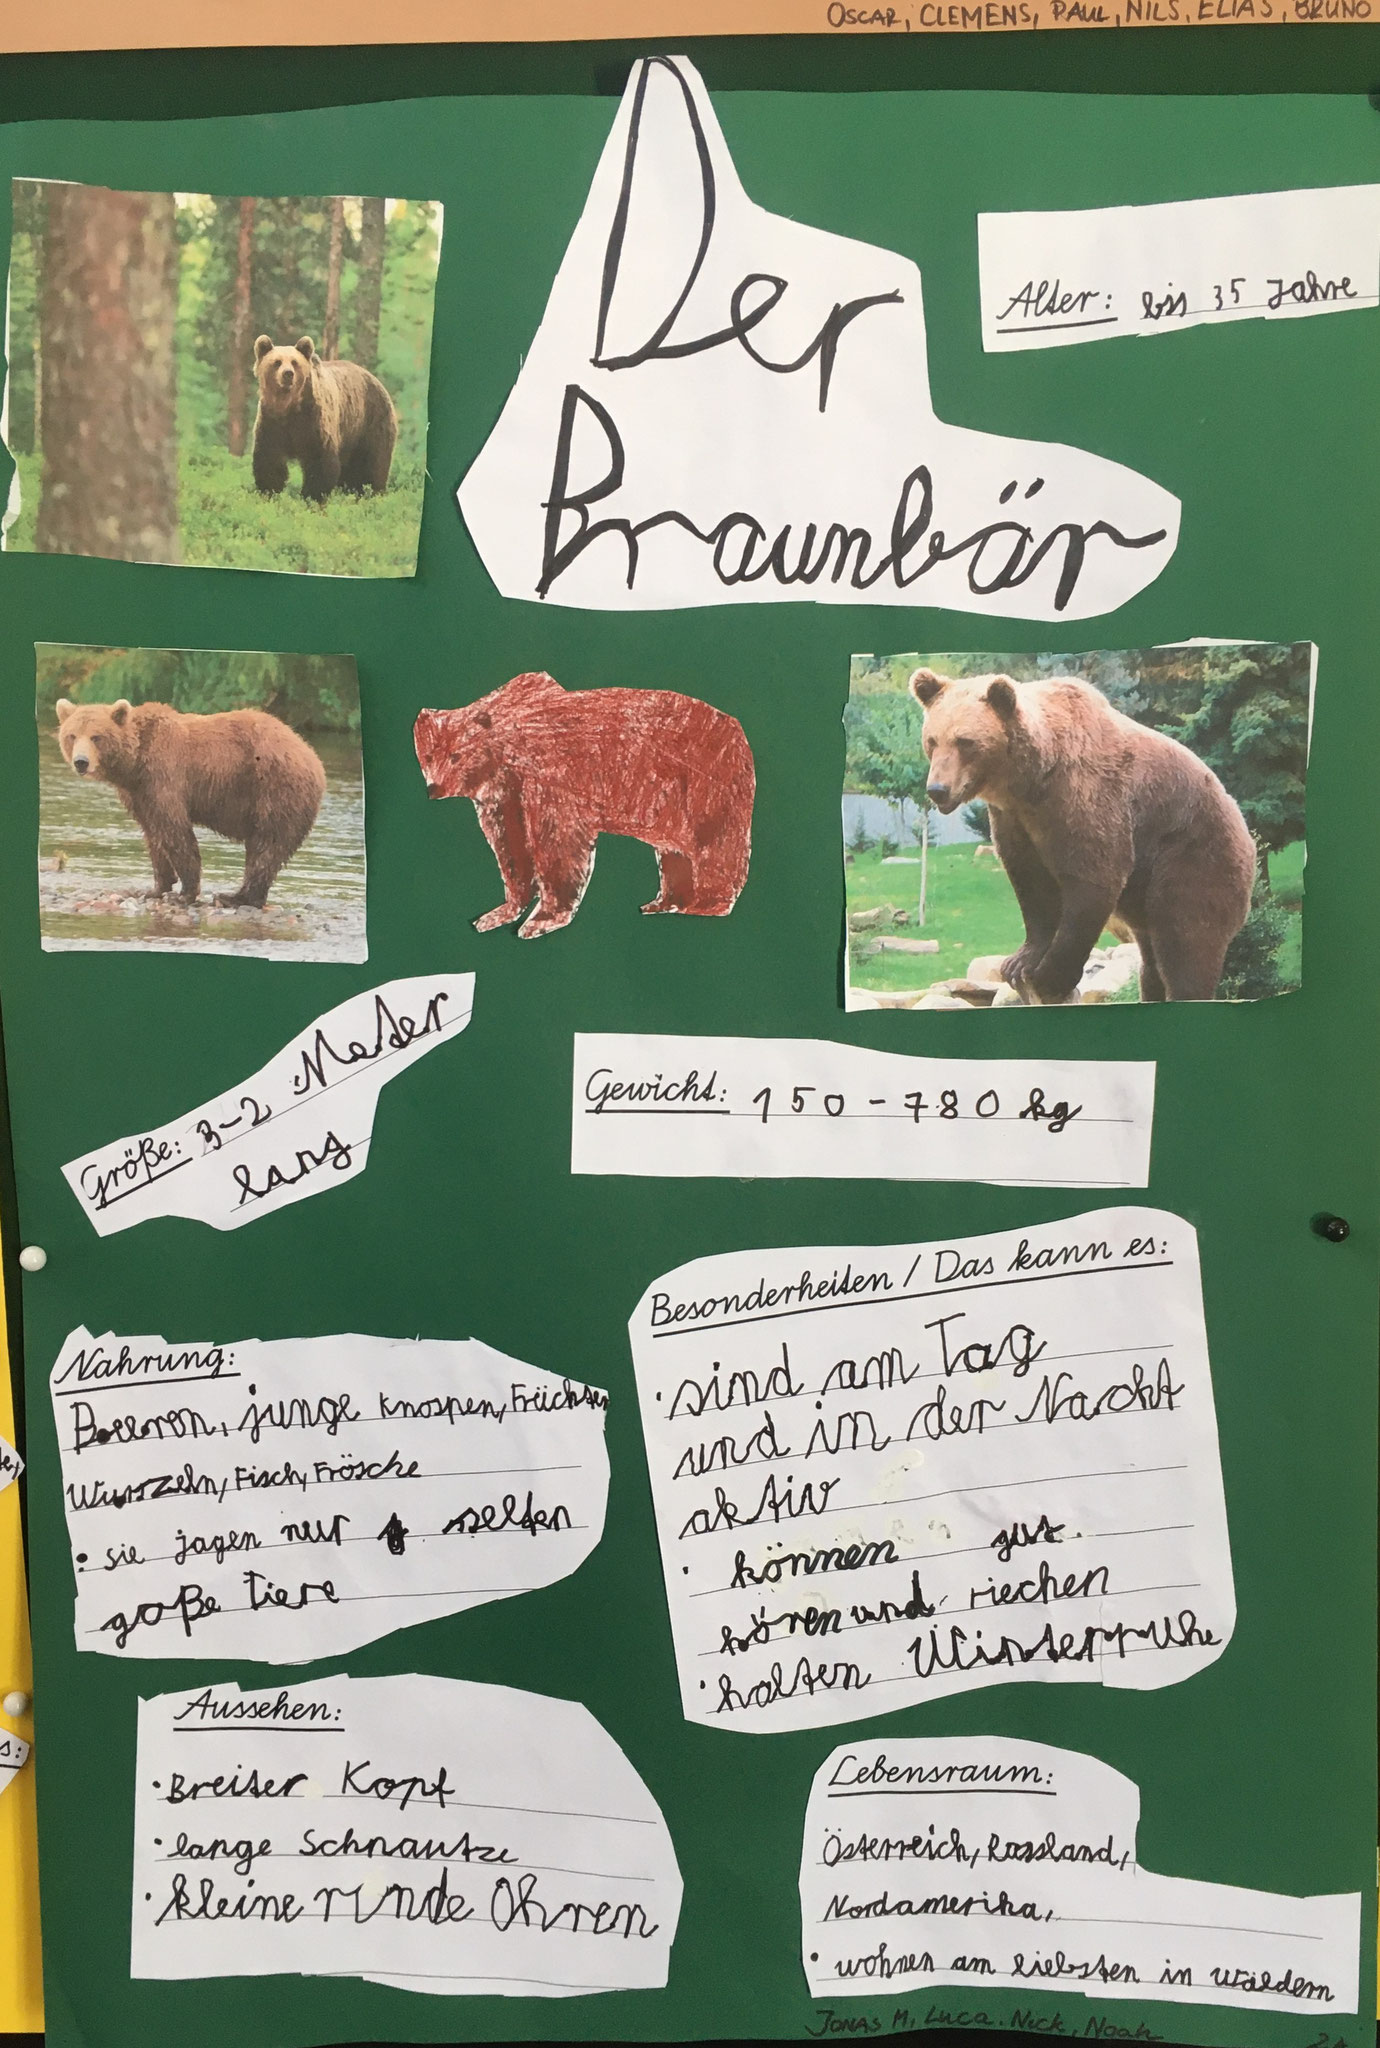 OSCAR, CLEMENS, PAUL, NILS, ELIAS, BRUNO
Der
Braunbär
Alter: bis 35 Jahre
Größe: 3-2 Meter
lang
Gewicht: 150-780 kg
Besonderheiten / Das kann es:
· sind am Tag
und in der Nacht
aktiv
· können gut
hören und riechen
· halten Winterruhe
Nahrung:
Beeren, junge Knospen, Früchten
Wurzeln, Fisch, Frösche
· sie jagen nur selten
goße Tiere
Aussehen:
· Breiter Kopf
· lange Schnautze
· kleine runde Ohren
Lebensraum:
Österreich, Russland,
Nordamerika,
· wohnen am liebsten in Wäldern
JONAS M, Luca. Nick, Noah